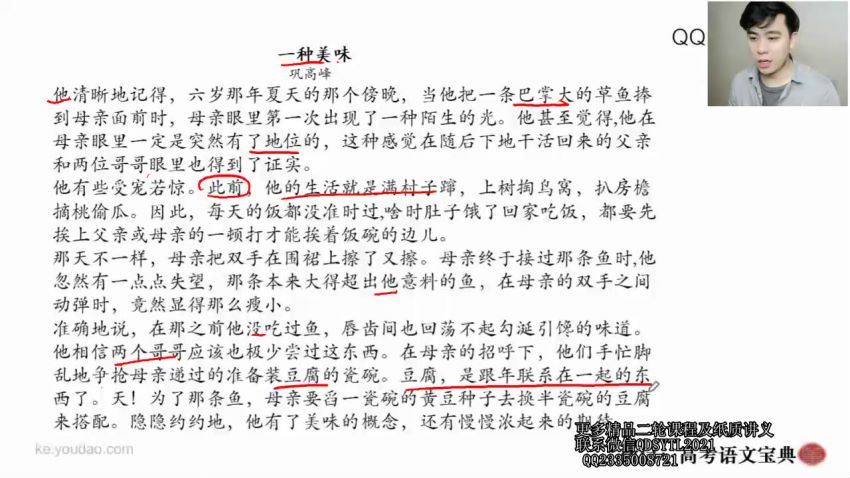 QQ
一种美味
巩高峰
他清晰地记得，六岁那年夏天的那个傍晚，当他把一条巴掌大的草鱼捧
到母亲面前时，母亲眼里第一次出现了一种陌生的光。他甚至觉得,他在
母亲眼里一定是突然有了地位的，这种感觉在随后下地干活回来的父亲
和两位哥哥眼里也得到了证实。
他有些受宠若惊。此前，他的生活就是满村子蹿，上树掏鸟窝，扒房檐
摘桃偷瓜。因此，每天的饭都没准时过,啥时肚子饿了回家吃饭，都要先
挨上父亲或母亲的一顿打才能挨着饭碗的边儿。
那天不一样，母亲把双手在围裙上擦了又擦。母亲终于接过那条鱼时,他
忽然有一点点失望，那条本来大得超出他意料的鱼，在母亲的双手之间
动弹时，竟然显得那么瘦小。
准确地说，在那之前他没吃过鱼，唇齿间也回荡不起勾涎引馋的味道。
他相信两个哥哥应该也极少尝过这东西。在母亲的招呼下，他们手忙脚
乱地争抢母亲递过的准备装豆腐的瓷碗。豆腐，是跟年联系在一起的东
西了。天！为了那条鱼，母亲要舀一瓷碗的黄豆种子去换半瓷碗的豆腐
来搭配。隐隐约约地，他有了美味的概念，还有慢慢浓起来的期待
更多精品二轮课程及纸质讲义
联系微信QDSYTL2021
QQ2335008721
高考语文宝典
ke.youdao.com